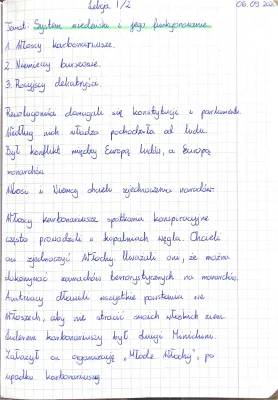 Lekcja 1/2
06.09.202
Temat: System wiedeński i jego funkcjonowanie
1. Włoscy karbonariusze.
2. Niemieccy bursze.
3. Rosyjscy dekabryści.
Rewolucjoniści domagali się konstytucji i parlamentu.
Według nich władza pochodziła od ludu.
Był konflikt między Europą ludów, a europą
monarchów
Włosi i Niemcy chcieli zjednoczenia narodów.
Włoscy karbonariusze spotkania konspiracyjne
często prowadzili w kopalniach węgla. Chcieli
oni zjednoczyć Włochy. Uważali oni, że można
dokonywać zamachów terrorystycznych na monarchów.
Austriacy dławili wszystkie powstania we
Włoszech, aby nie stracić swoich włoskich ziem.
Liderem karbonariuszy był
Założył on organizację „Młode Włochy", po
upadku karbonariuszy.